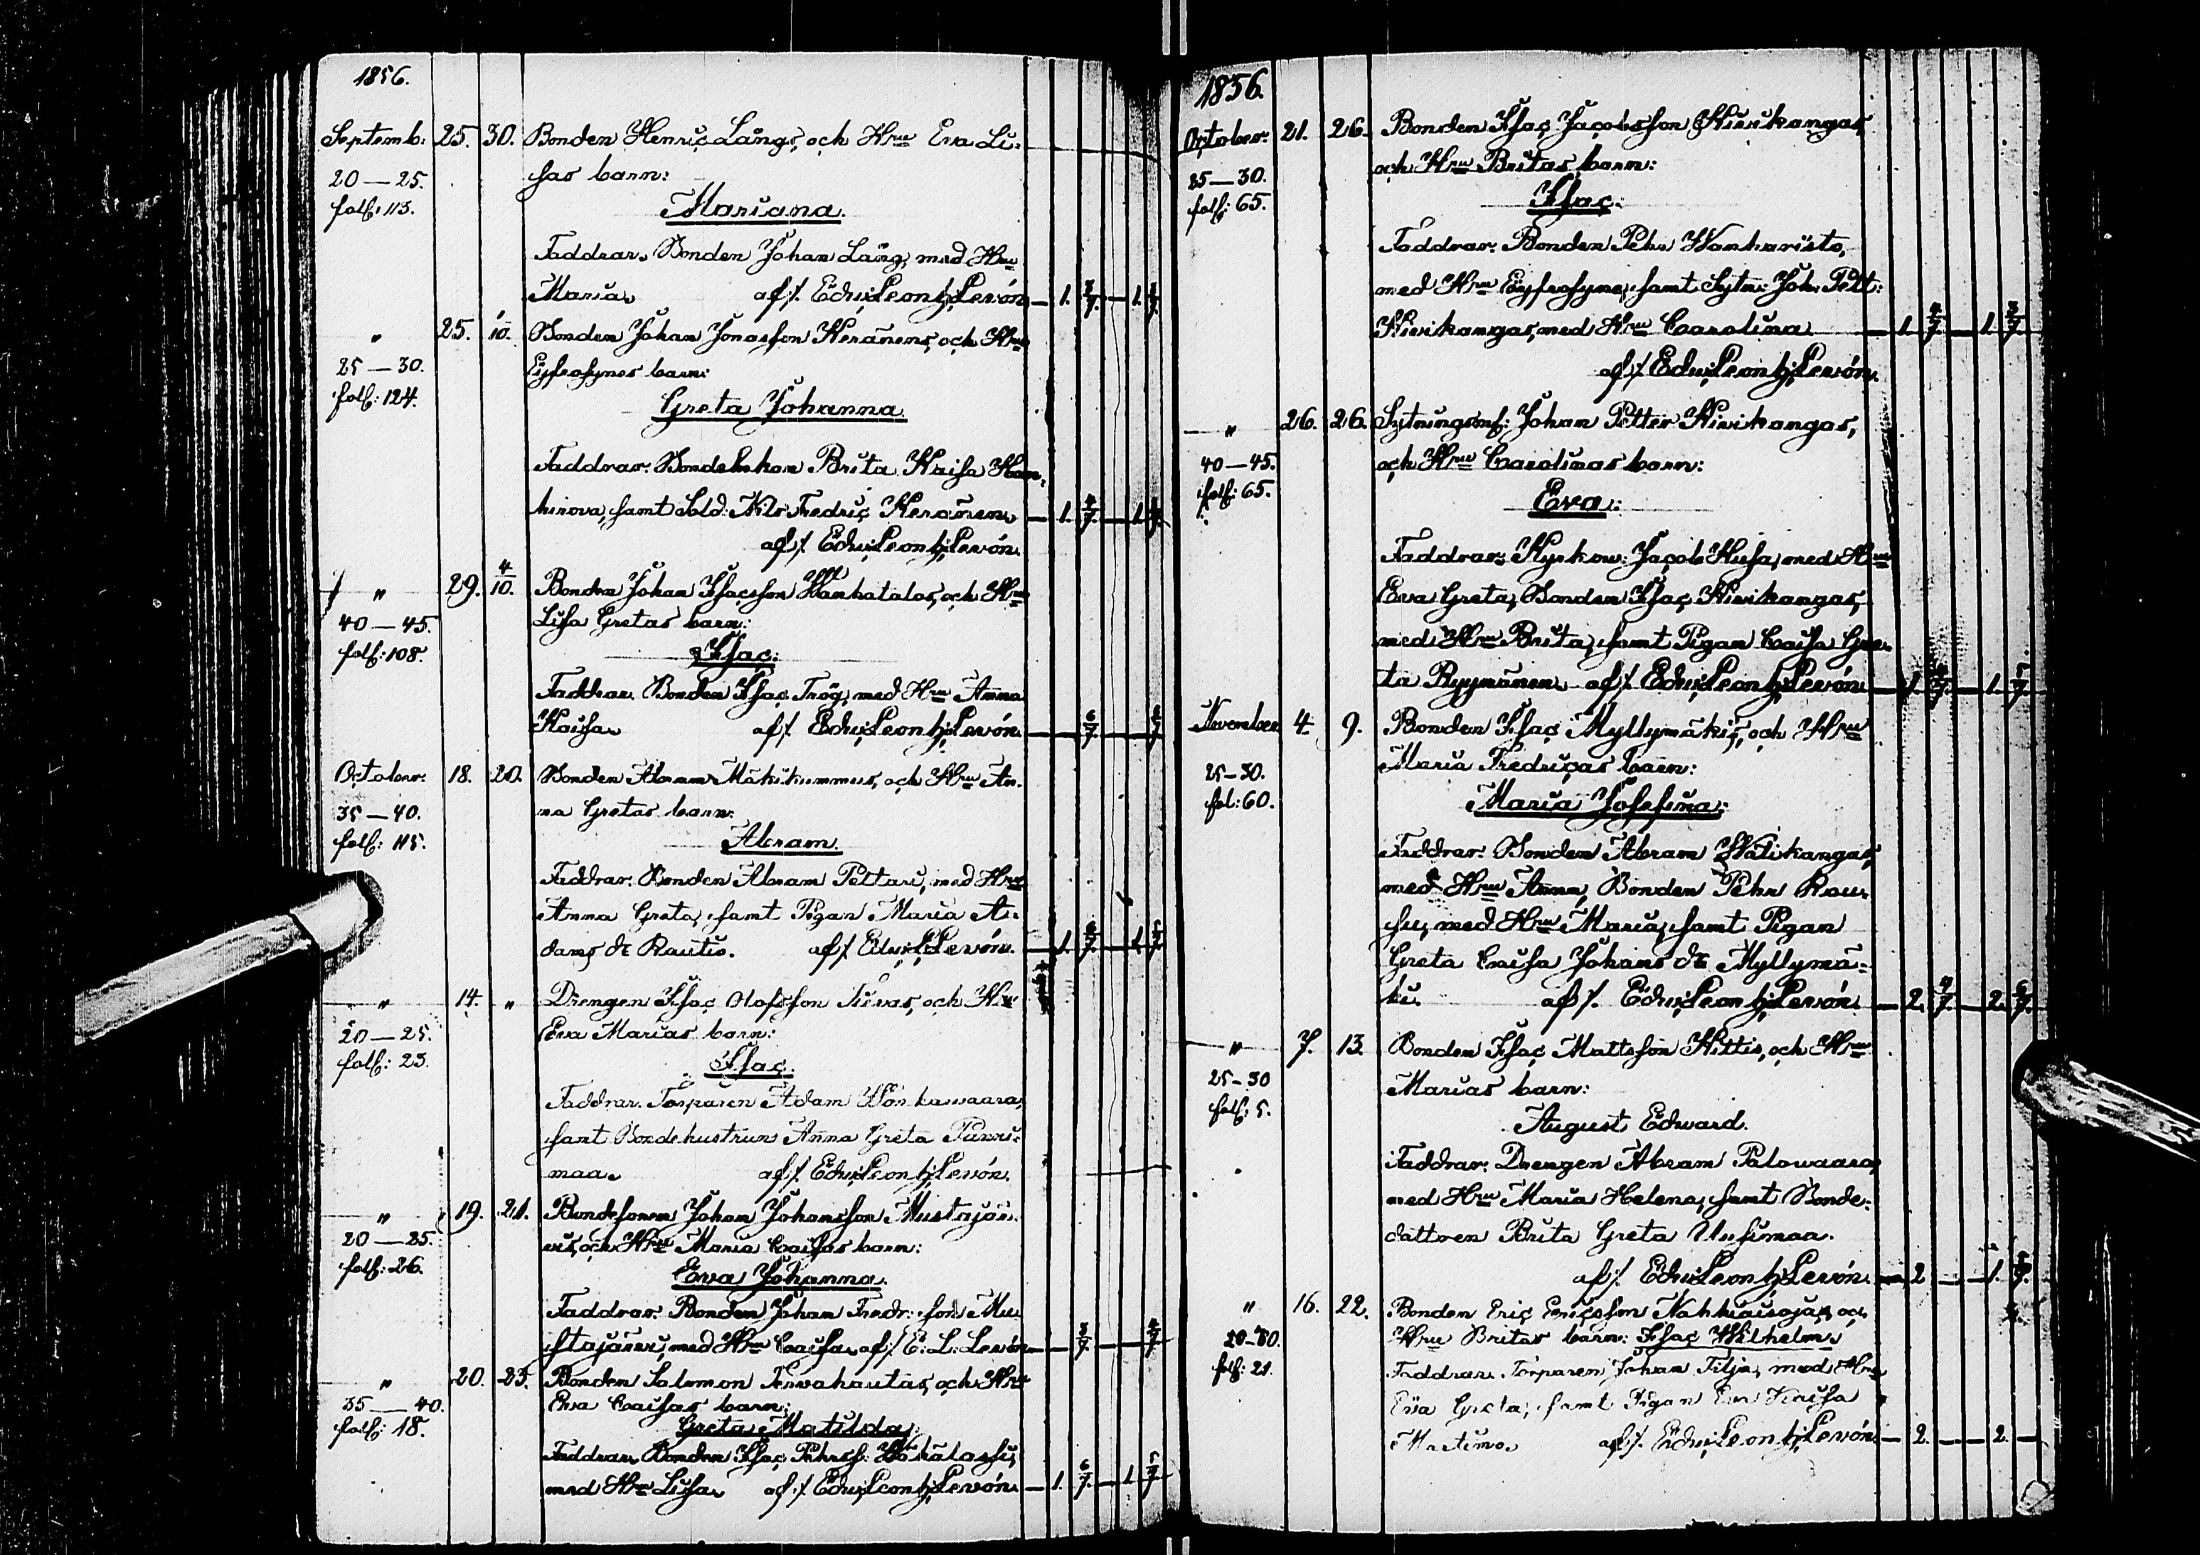 1856.
Septemb: 25. 30. Bonden Henriç Långs, och Hru Eva Li-
20 — 25. sas barn:
fol: 113. Mariana.
Faddrar. Bonden Johan Lång, med Hru
Maria. af/. Edv: Leonh: Levón. — 1. — 1.
" 25. 1/10. Bonden Johan Jonasson Heränens, och Hru
25 — 30. Eufrosynes barn:
fol: 124. Greta Johanna.
Faddrar. Bondehkon Brita Kaisa
hirova, samt Sold: Nils Fredriç Heränen. — 1. 4/7. — 1.
af/. Edv: Leonh: Levón.
" 29. 4/10. Bonden Johan Isaçsson Wanhatalos, och Hru
40 — 45. Lisa Gretas barn:
fol: 108. Isaç:
Faddrar. Bonden Isaç Trög, med Hru Anna
Kaisa. af/. Edv: Leonh: Levón. — 6/7. —
October: 18. 20. Bonden Abram Mäkikummus, och Hru An-
35 — 40. na Gretas barn:
fol: 115. Abram.
Faddrar. Bonden Abram Pettari, med Hru
Anna Greta, samt Pigan Maria A-
dams dr Rautio. af/. Edv: L: Levón. — 1. — 1.
" 14. " Drengen Isaç Olofsson Tievas, och Hru
20 — 25. Eva Marias barn:
fol: 23. Isaç.
Faddrar. Torparen Adam
samt Bondehustrun Anna Greta
maa. af/. Edv: Leonh: Levón.
" 19. 21. Bondesonen Johan Johansson Mustajär-
20 — 25. vis, och Hru Maria Caisas barn:
fol: 26. Eva Johanna.
Faddrar. Bonden Johan Fredr: son Mu-
stajärvi, med Hru Caisa. af/. E: L: Levón. — 3/7. —
" 20. 25. Bonden Salomon Tervahautas, och Hru
35 — 40. Eva Caisas barn:
fol: 18. Greta Matilda.
Faddrar. Bonden Isaç Pehrss:
med Hru Lisa. af/. Edv: Leonh: Levón. — 1. 6/7. — 1.
1856.
October. 21. 26. Bonden Isaç Jaçobsson Hirvikangas,
25 — 30. och Hru Britas barn:
fol: 65. Isaç:
Faddrar. Bonden Pehr Wanharisto,
med Hru Eufrosyne, samt Sytn: Joh: Pett:
Hirvikangas, med Hru Carolina. — 1. 4/7. — 1. 3/7.
af/. Edv: Leonh: Levón.
" 26. 26. Sytningsm: Johan Petter Hirvikangas,
40 — 45. och Hru Carolinas barn:
fol: 65. Eva:
Faddrar. Kyrkow: Jaçob Husa, med Hru
Eva Greta, Bonden Isaç Hirvikangas,
med Hru Brita, samt Pigan Caisa Gre-
ta Ryynänen. af/. Edv: Leonh: Levón. — 1. — 1.
November. 4. 9. Bonden Isaç Myllymäkis, och Hru
25 — 30. Maria Fredriças barn:
fol: 60. Maria Josefina:
Faddrar. Bonden Abram Wälikangas,
med Hru Anna, Bonden Pehr Rau-
su, med Hru Maria, samt Pigan
Greta Caisa Johans dr Myllymä-
ki. af/. Edv: Leonh: Levón. — 2. 4/7. — 2.
" 7. 13. Bonden Isaç Mattsson Hittis, och Hru
25 — 30 Marias barn:
fol: 5. August Edward.
Faddrar. Drengen Abram Palowaara,
med Hru Maria Helena, samt Bonde-
dattren Brita Greta Uusimaa.
af/. Edv: Leonh: Levón. — 2. — 1.
" 16. 22. Bonden Eriç Eriçsson Nahkiaisojas, och
20 — 30. Hru Britas barn: Isaç Wilhelm.
fol: 21. Faddrar. Torparen Johan Tilja, med Hru
Eva Greta, samt Pigan Eva Kaisa
Martimo. af/. Edv: Leonh: Levón. — 2. — 2. —